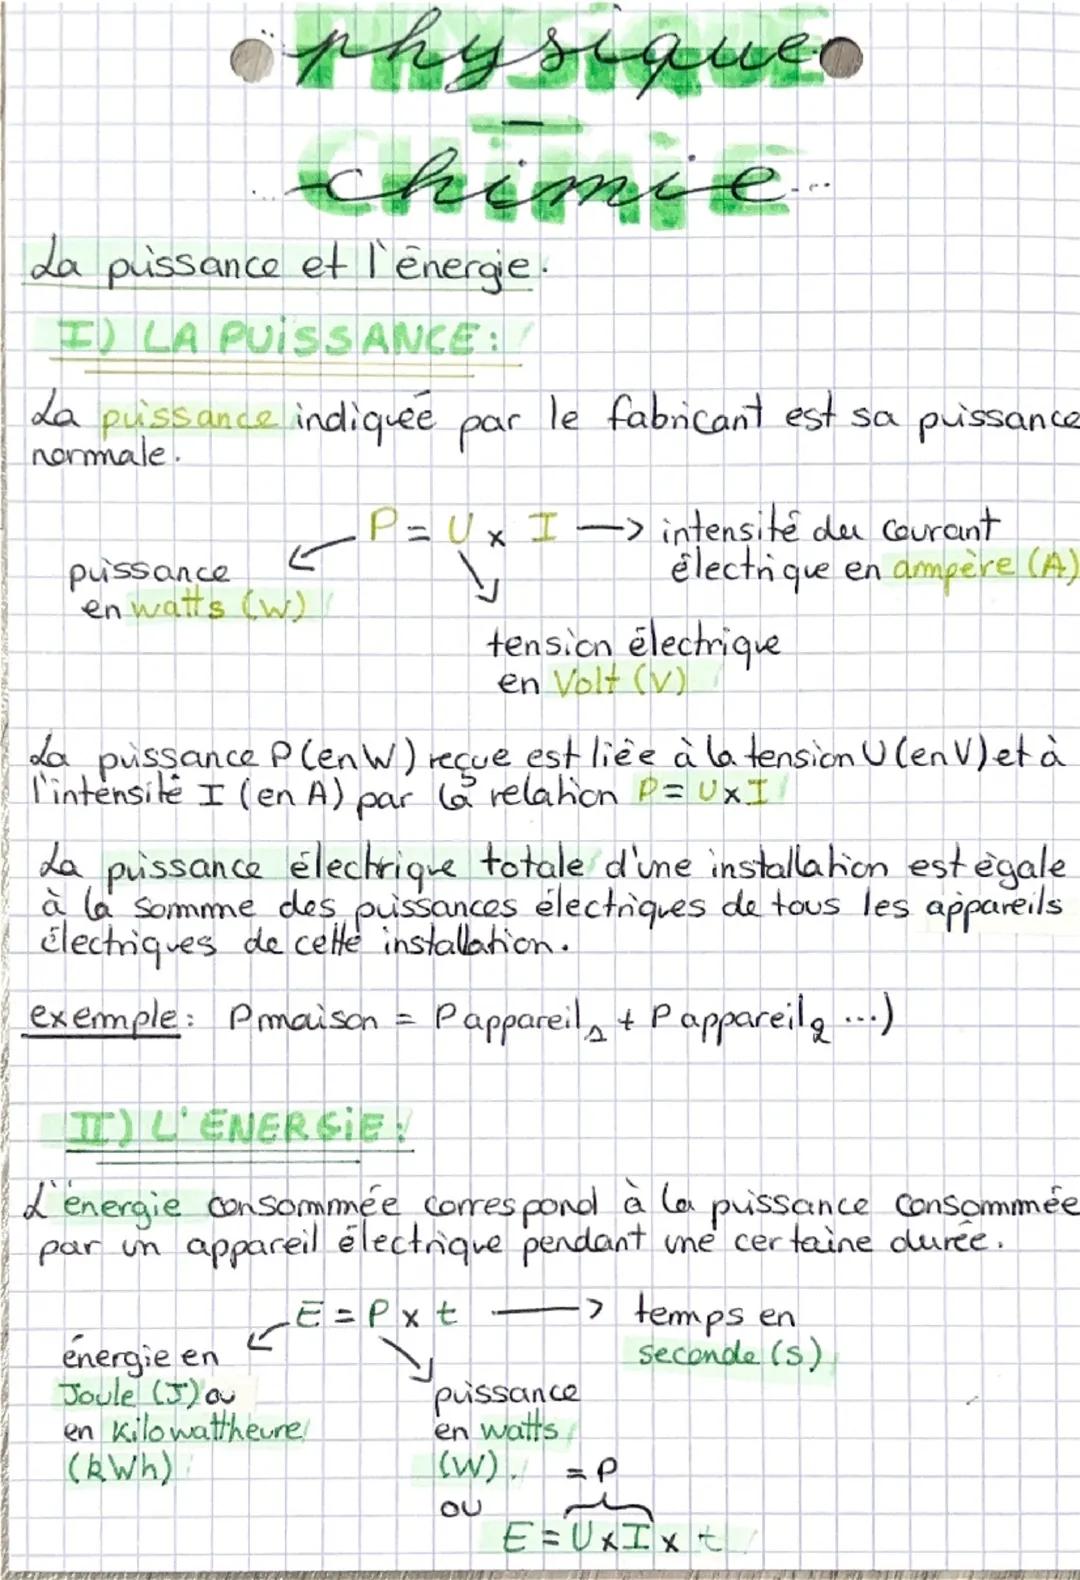 physique
PHYSIQUE
-
chimie
CHIMIE
La puissance et l'énergie.
I) LA PUISSANCE :
La puissance indiquée par le fabricant est sa puissance
normale.
P = U x I → intensité du courant
électrique en ampère (A)
puissance
en watts (W)
tension électrique
en Volt (V)
La puissance P (en W) reçue est liée à la tension U (en V) et à
l'intensité I (en A) par la relation P = U x I
La puissance électrique totale d'une installation est égale
à la somme des puissances électriques de tous les appareils
électriques de cette installation.
exemple : P maison = P appareil 1 + P appareil 2 ...)
II) L'ÉNERGIE :
L'énergie consommée correspond à la puissance consommée
par un appareil électrique pendant une certaine durée.
E = P x t → temps en
seconde (s)
énergie en
Joule (J) ou
en Kilowattheure
(kWh)
puissance
en watts
(W).
ou
= P
E = U x I x t